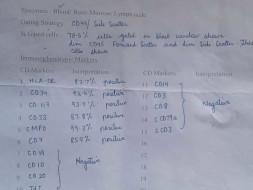 Specimen: Blood/ Bone Marrow/ Lymph node
Gating Strategy CD45/ Side Scatter
% Gated cells 78.5% cells gated in blast window shows
dim CD45 Forward Scatter and dim Side Scatter. These
cells shows
Immunophenotypic Markers
CD Markers Interpretation CD Markers Interpretation
1 HLA-DR 82.7% positive
2 CD34 positive
3 CD117 positive
4 CD33 87.8% positive
5 CMPO 99.2% positive
6 CD7 85.4% positive
7 CD19
8 CD10
9 CD20
10 TdT
Negative
11 CD14
12 CD5
13 CD8
14 CD79a
15 CD3
Negative